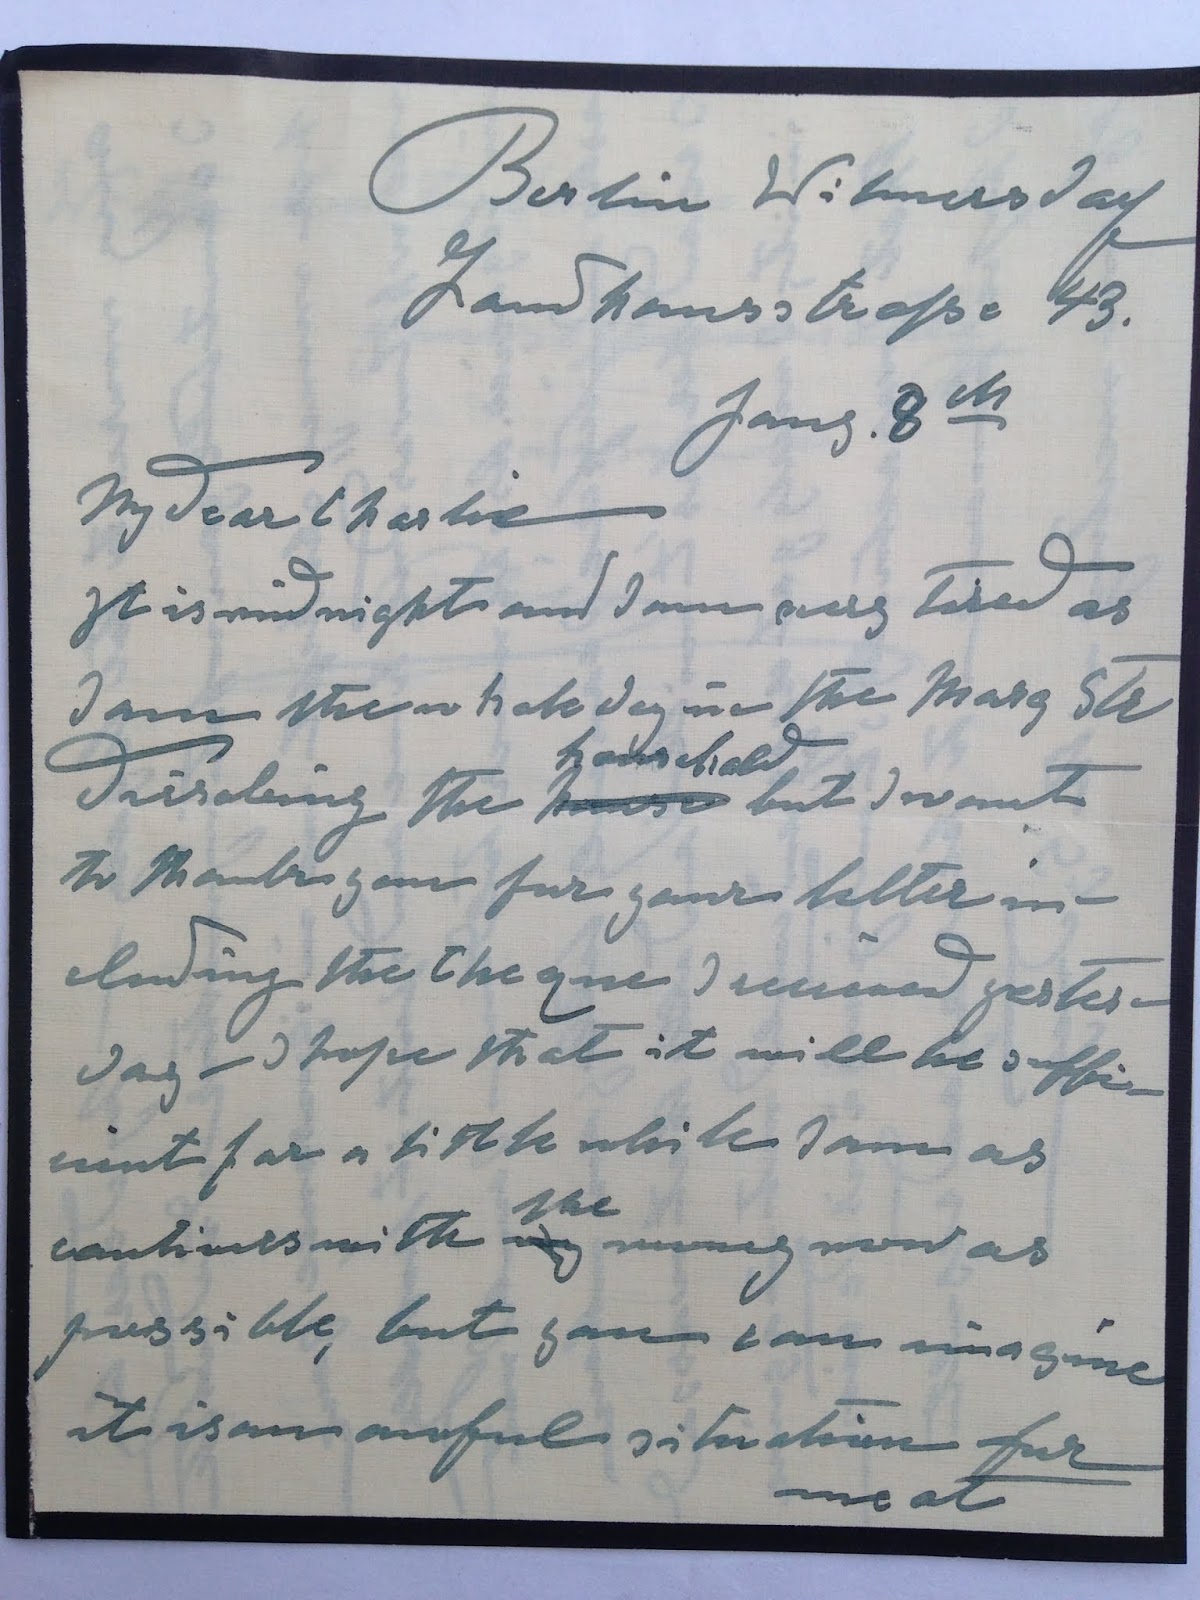 Berlin Wilmersdorf
Landhausstrasse 43.
Jany. 8th
My dear Charlie
It is midnight and I am very tired as
I am the whole day in the Marg Str
dissolving the house household but I want
to thank you for your letter in-
cluding the Cheque I received yester-
day – I hope that it will be suffi-
cient for a little while I am as
cautious with my the money now as
possible, but you can imagine
it is an awful situation for
me at